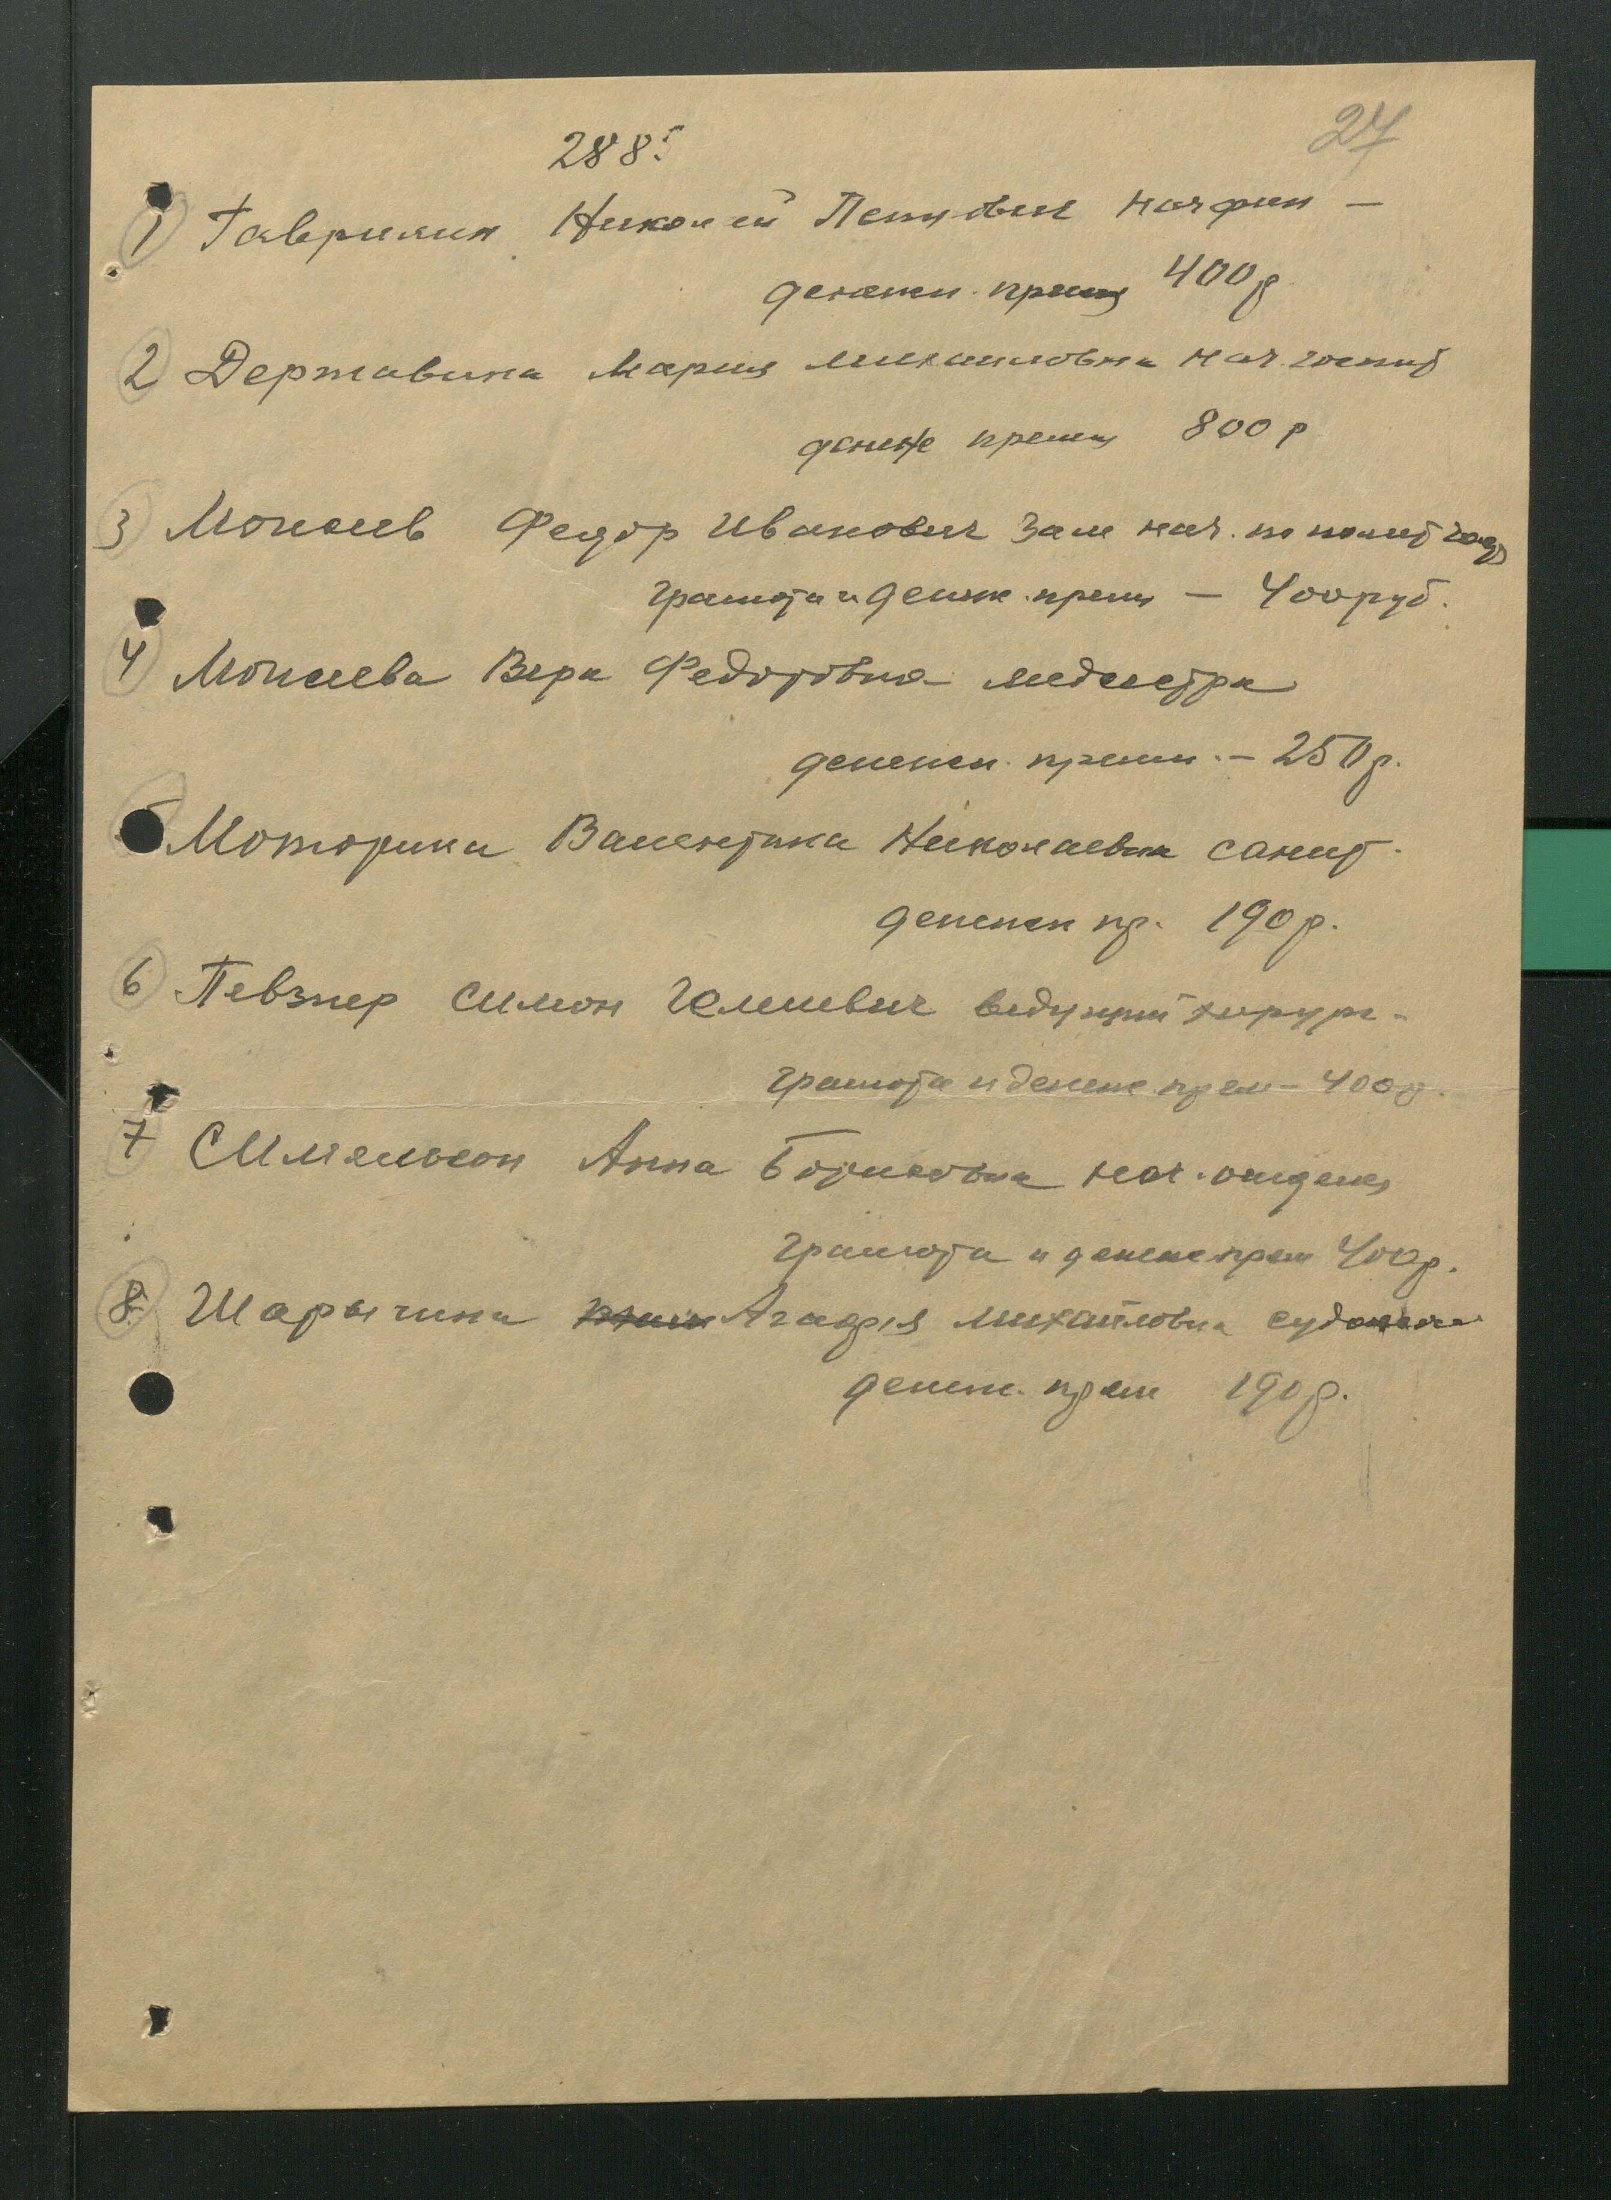 27
2885
1) Гаврилин Николай Петрович начфин —
денежн. прем 400 р
2 Державина Мария Михайловна нач. госпит
денеж премия 800 р
3 Моисеев Федор Иванович Зам нач. по полит
грамота и денеж. прем — 400 руб.
4 Моисеева Вера Федоровна медсестра
денежн. премия. – 250 р.
5 Моторина Валентина Николаевна санит.
денежн пр. 190 р.
6 Певзнер Симон ведущий хирург –
грамота и денеж прем – 400 р.
7 Анна Борисовна нач. отделен
грамота и денеж прем 400 р.
8 Шарыгина Агафия Михайловна
денеж. прем 190 р.